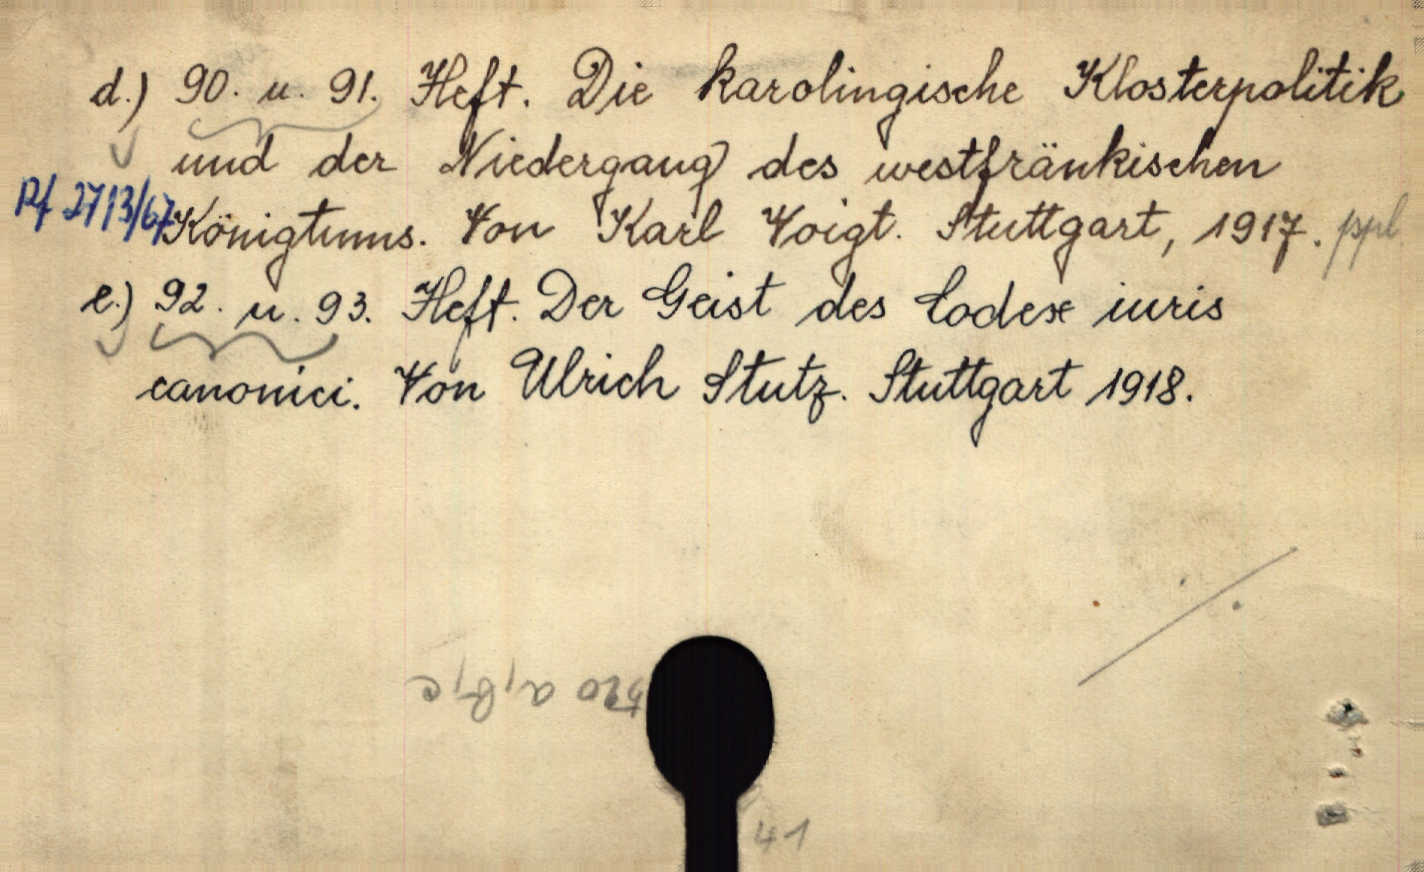 d.) 90. u. 91. Heft. Die karolingische Klosterpolitik
und der Niedergang des westfränkischen
Pf 2713/67 Königtums. Von Karl Voigt. Stuttgart, 1917. ppl
e.) 92. u. 93. Heft. Der Geist des Codex iuris
canonici. Von Ulrich Stutz. Stuttgart 1918.
a, b, c
41